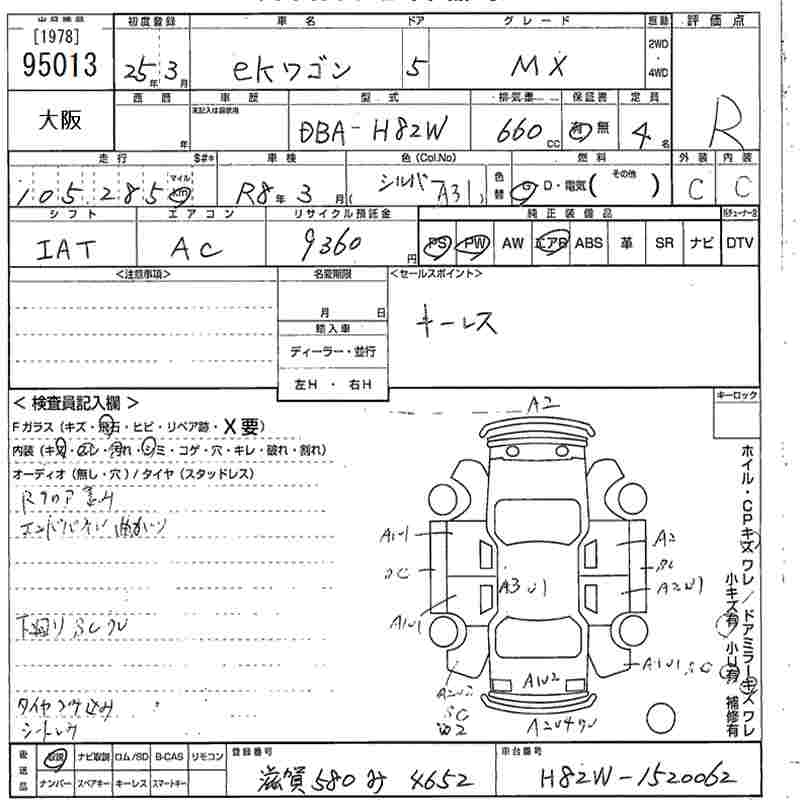 出品番号 初度登録 車名 ドア グレード 駆動 評価点
[1978] 95013 25年 3月 ekワゴン 5 MX 2WD ・ 4WD R
大阪 西暦 年 車歴 型式 DBA-H82W 排気量 660 cc 保証書 有 無 定員 4名
走行 S#* 車検 色(Col.No) 色替 燃料 外装 内装
105285 マイル km R8年 3月 シルバ (A31) G・D・電気( その他 ) C C
シフト エアコン リサイクル預託金 純正装備品
IAT AC 9360円 PS PW AW エアB ABS 革 SR ナビ DTV
<注意事項> 名変期限 <セールスポイント>
月 日 キーレス
輸入車
ディーラー・並行
左H ・ 右H
キーロック
< 検査員記入欄 >
Fガラス (キズ・飛石・ヒビ・リペア跡・X要)
内装 (キズ・スレ・汚れ・シミ・コゲ・穴・キレ・破れ・割れ)
オーディオ (無し・穴) / タイヤ (スタッドレス)
Rフロア
エンドパネル 曲がり
下廻り SC
タイヤ
シート
A2
A1U1 A2
SC SC
A3U1 A2U1
A1U1
A1U1 SC
A2U2 A1U2
SC
A2U4
ホイル・CPキズ ワレ / ドアミラーキズ ワレ
小キズ有 小U有 補修有
後送品 取説 ナビ取説 ロム/SD B-CAS リモコン 登録番号 車台番号
ナンバー スペアキー キーレス スマートキー 滋賀 580 み 4652 H82W-1520062